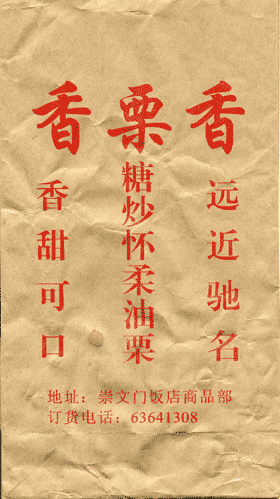 香栗香
远近驰名
糖炒怀柔油栗
香甜可口
地址：崇文门饭店商品部
订货电话：63641308